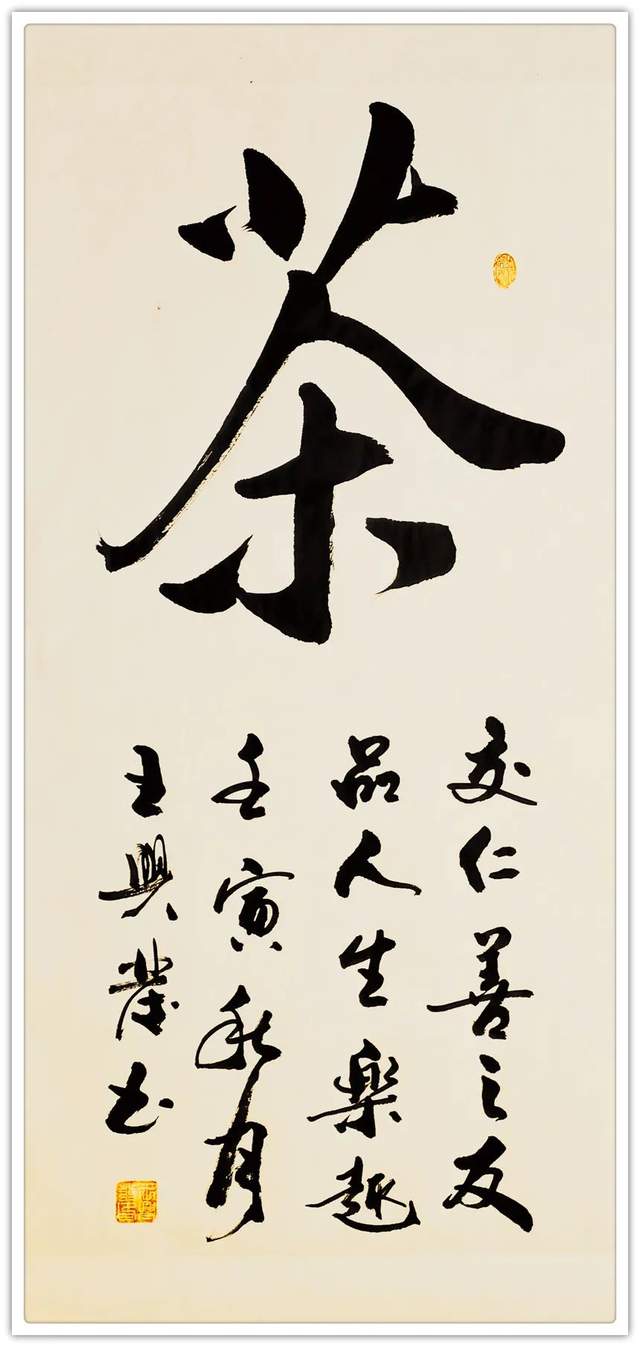 茶
交仁善之友
品人生樂趣
壬寅秋月
王興书